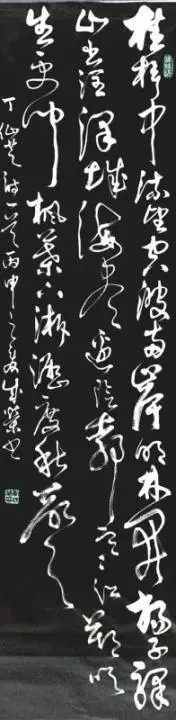 桂楫中流望空波兩岸明林開揚子驛
山出潤州城海盡邊陰靜江寒朔吹
生更聞楓葉下淅瀝度秋聲
丁仙芝詩一首丙申之夏成榮書